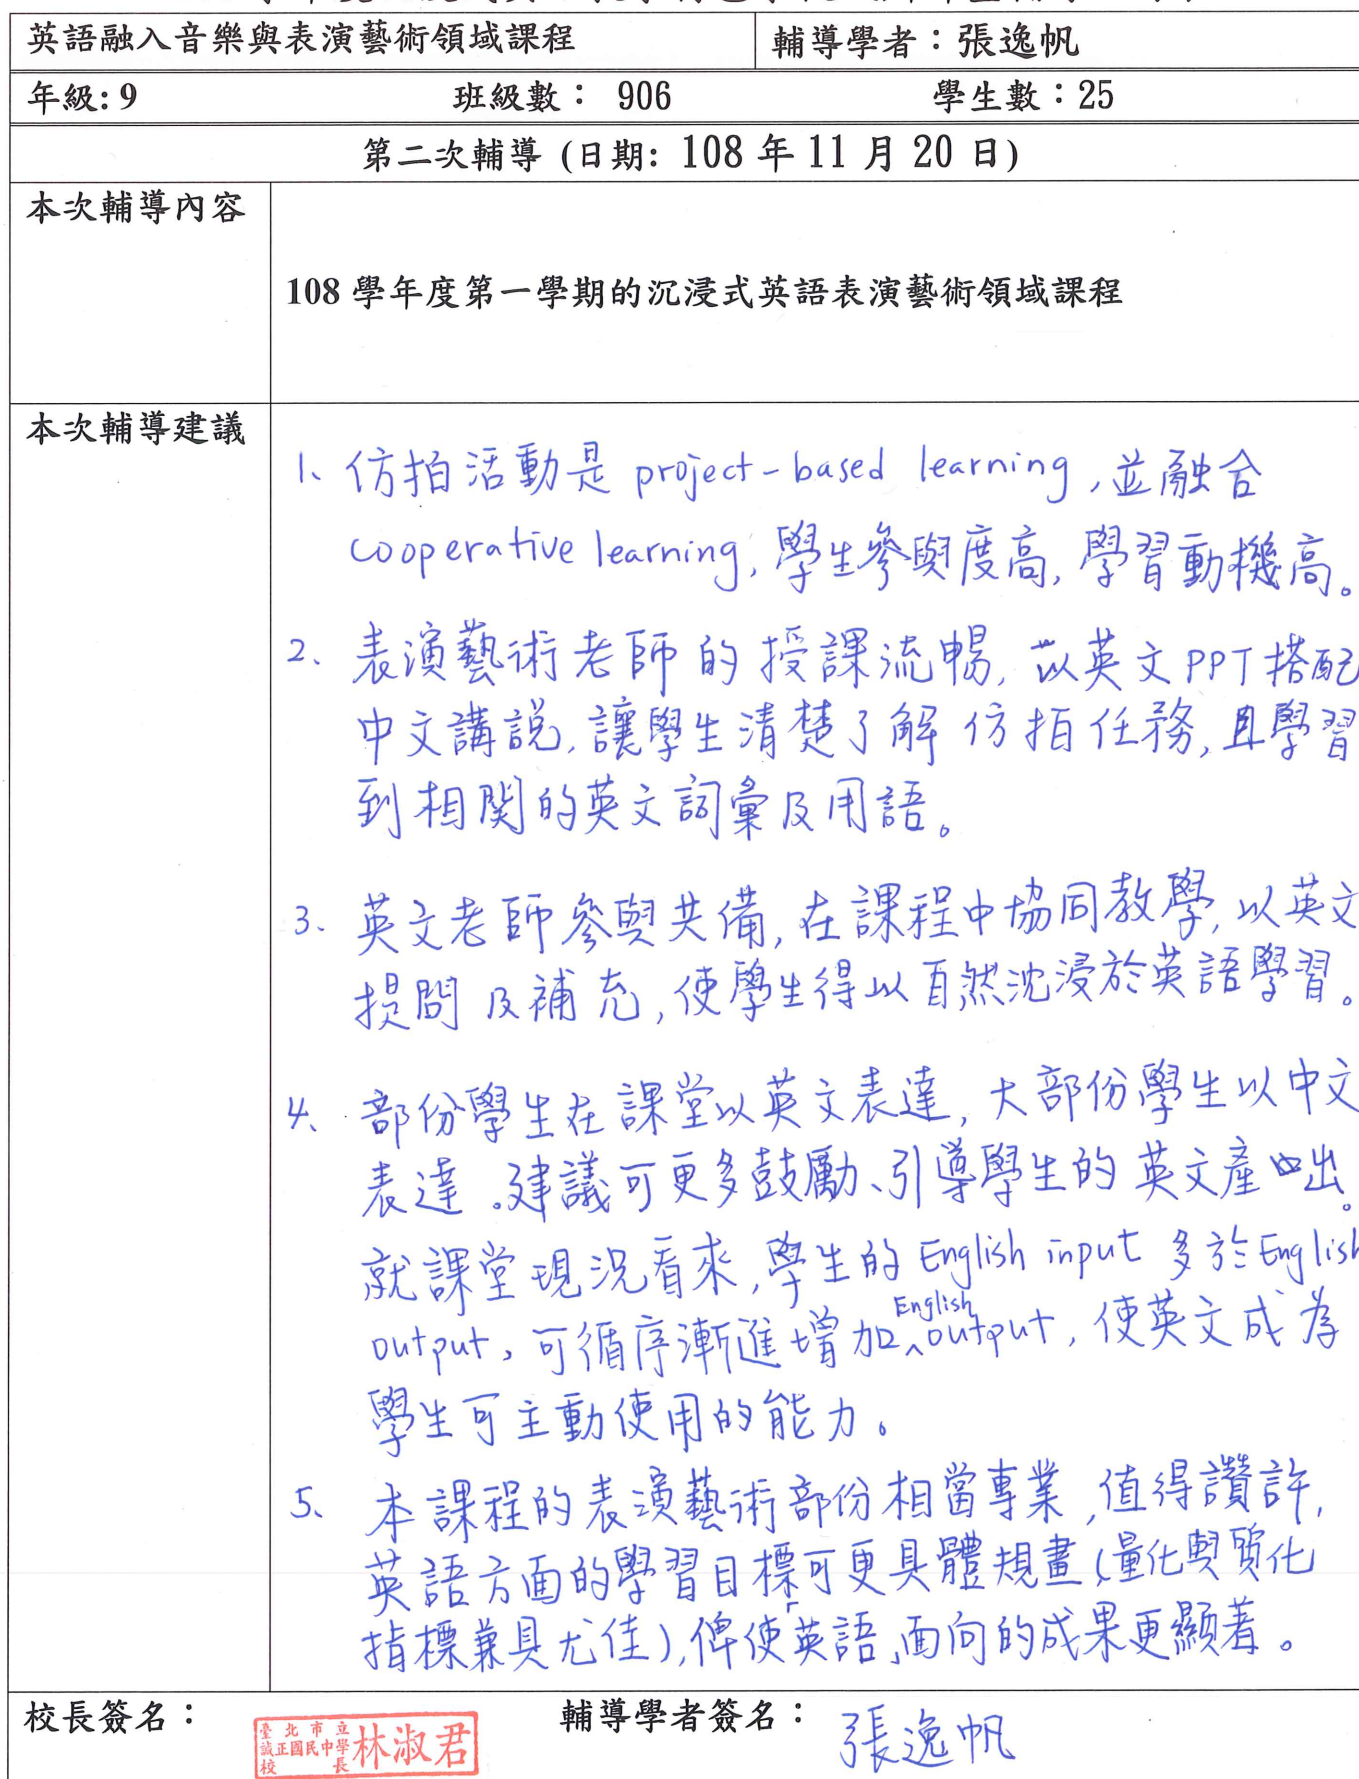 英語融入音樂與表演藝術領域課程 輔導學者：張逸帆
年級: 9 班級數： 906 學生數：25
第二次輔導 (日期: 108 年 11 月 20 日)
本次輔導內容
108 學年度第一學期的沉浸式英語表演藝術領域課程
本次輔導建議
1、仿拍活動是 project-based learning,並融合
cooperative learning, 學生參與度高, 學習動機高。
2、表演藝術老師的授課流暢, 以英文PPT搭配
中文講說, 讓學生清楚了解仿拍任務, 且學習
到相関的英文詞彙及用語。
3、英文老師參與共備, 在課程中協同教學, 以英文
提問及補充, 使學生得以自然沈浸於英語學習。
4、部份學生在課堂以英文表達, 大部份學生以中文
表達。建議可更多鼓勵、引導學生的英文產出。
就課堂現況看來, 學生的 English input 多於 English
output, 可循序漸進增加 English output, 使英文成為
學生可主動使用的能力。
5、本課程的表演藝術部份相當專業, 值得讚許,
英語方面的學習目標可更具體規畫(量化與質化
指標兼具尤佳), 俾使「英語」面向的成果更顯著。
校長簽名： 輔導學者簽名： 張逸帆
臺北市立
誠正國民中學
校長 林淑君